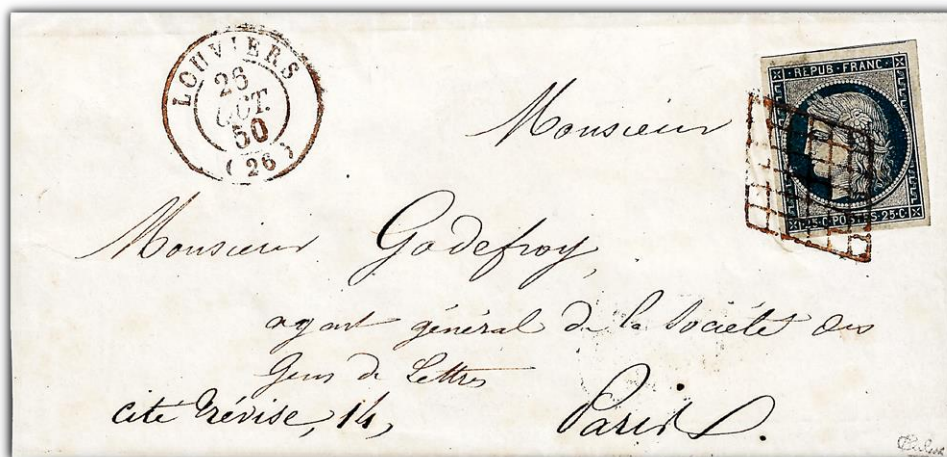 LOUVIERS
26
OCT.
50
(26)
REPUB·FRANC·
25·C·POSTES·25·C·
Monsieur
Monsieur Godefroy,
agent général de la Société des
Gens de Lettres
cité Trévise, 14,
Paris